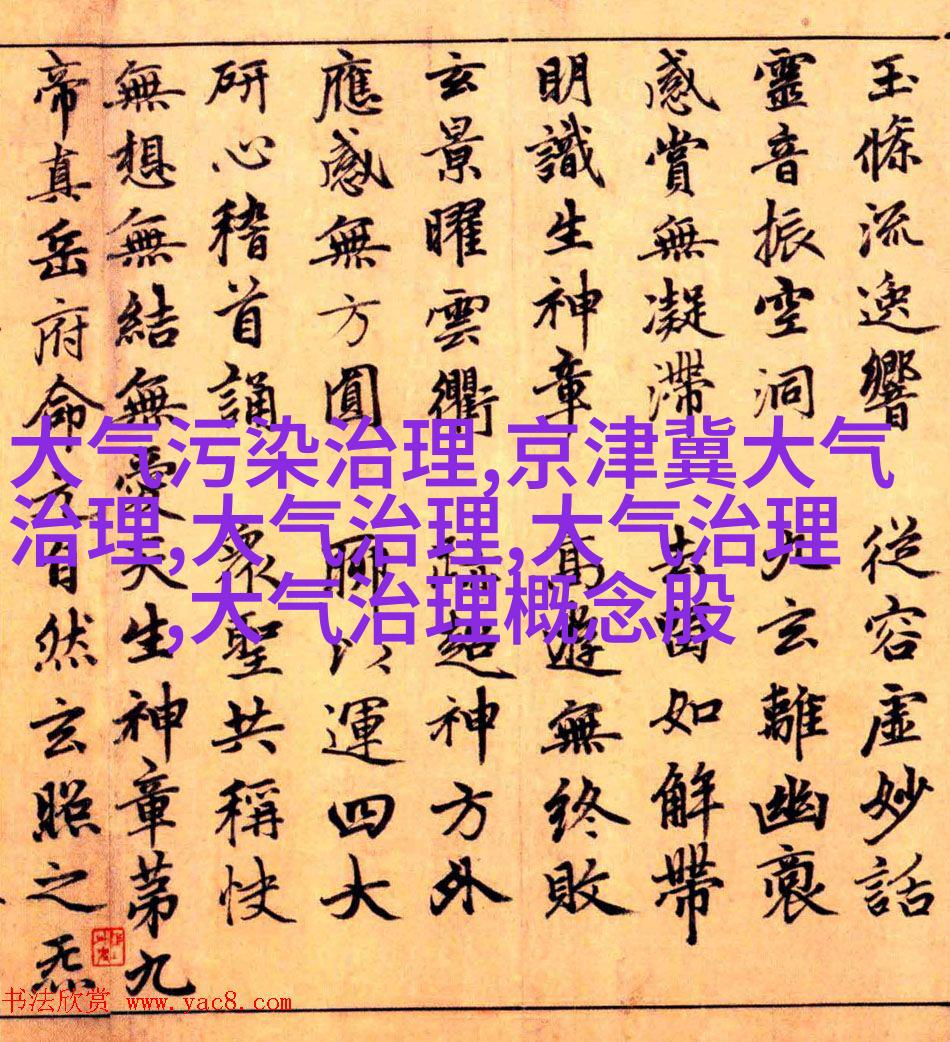 玉條流逸響　從容虛妙話
靈音振空洞　九玄離幽裒
感賞無凝滯　去留如解帶
明識生神章　高遊無終敗
玄景曜雲衢　跡超神方外
應感無方圓　聊以運四大
研心稽首誦　眾聖共稱快
無想無結無愛天生神章第九
帝真岳府命 自然玄照之炁
大气污染治理,京津冀大气
治理,大气治理,大气治理
,大气治理概念股
书法欣赏 www.yac8.com